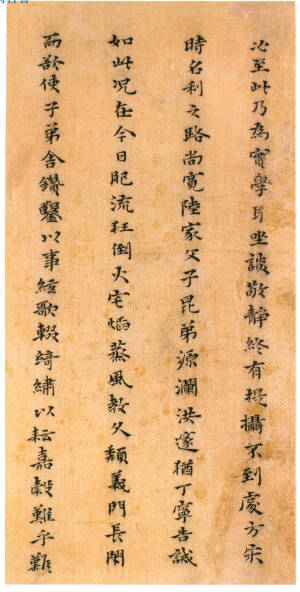 必至此乃為實學耳坐談敬靜終有提攝不到處方宋
時名利之路尚寬陸家父子昆弟源瀾洪邃猶丁寧告誡
如此況在今日肥流狂倒火宅焰蒸風教久頹義門長閑
而欲使子弟舍鑽鑿以事絃歌輟綺繡以耘嘉穀難乎難